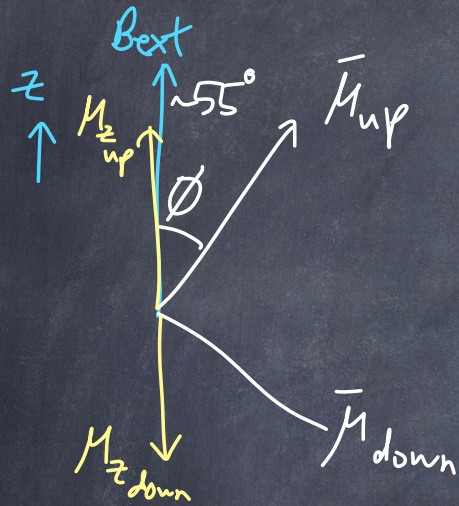 Bext
z
~55°
μz up
μ̄up
ϕ
μ̄down
μz down